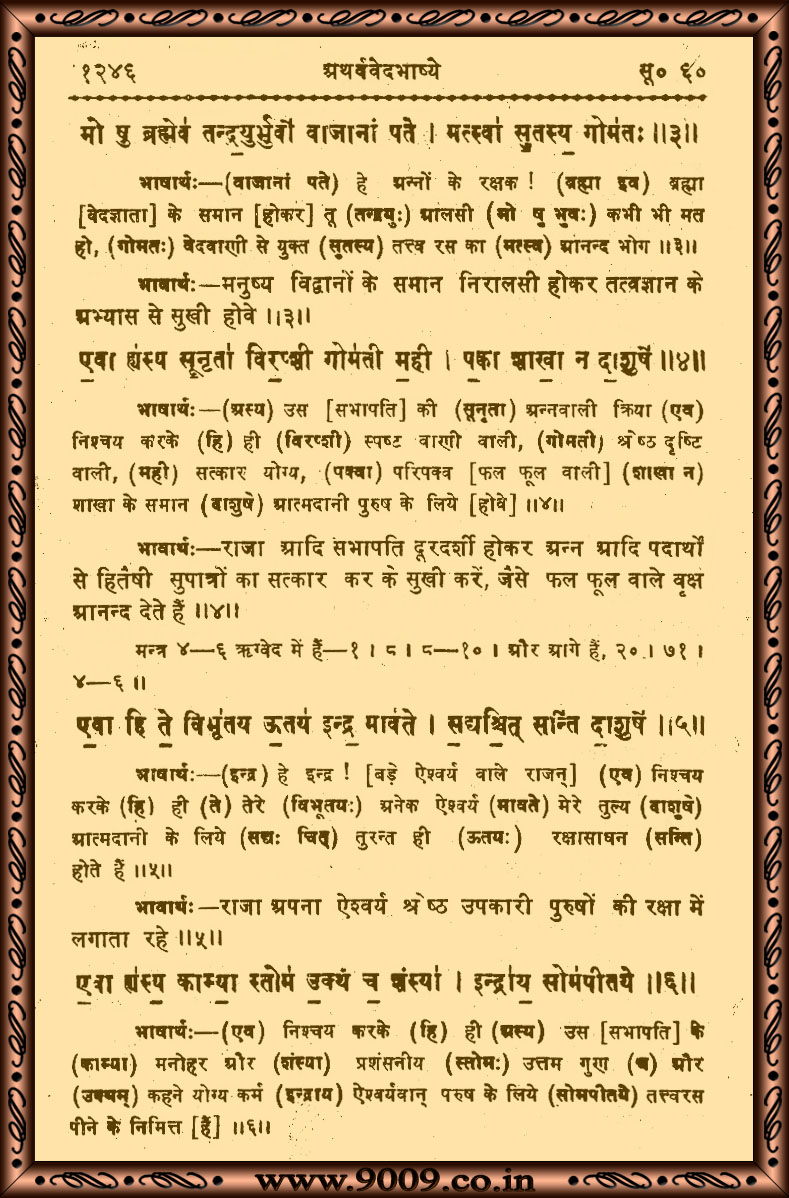 १२४६ अथर्ववेदभाष्ये सू० ६०
मो षु ब्रह्मेव॑ तन्द्र॒युर्भुवो॑ वाजानां पते । मत्स्वा॑ सु॒तस्य॒ गोम॑तः ॥३॥
भाषार्थः—(वाजानां पते) हे अन्नों के रक्षक ! (ब्रह्मा इव) ब्रह्मा
[वेदज्ञाता] के समान [होकर] तू (तन्द्रयुः) आलसी (मो षु भुवः) कभी भी मत
हो, (गोमतः) वेदवाणी से युक्त (सुतस्य) तत्त्व रस का (मत्स्व) आनन्द भोग ॥३॥
भावार्थः—मनुष्य विद्वानों के समान निरालसी होकर तत्वज्ञान के
अभ्यास से सुखी होवे ॥३॥
ए॒वा ह्य॑स्य सू॒नृता॑ विर॒प्शी गोम॑ती म॒ही । प॒क्वा शाखा॒ न दा॒शुषे॑ ॥४॥
भाषार्थः—(अस्य) उस [सभापति] की (सूनृता) अन्नवाली क्रिया (एव)
निश्चय करके (हि) ही (विरप्शी) स्पष्ट वाणी वाली, (गोमती) श्रेष्ठ दृष्टि
वाली, (मही) सत्कार योग्य, (पक्वा) परिपक्व [फल फूल वाली] (शाखा न)
शाखा के समान (दाशुषे) आत्मदानी पुरुष के लिये [होवे] ॥४॥
भावार्थः—राजा आदि सभापति दूरदर्शी होकर अन्न आदि पदार्थों
से हितैषी सुपात्रों का सत्कार कर के सुखी करें, जैसे फल फूल वाले वृक्ष
आनन्द देते हैं ॥४॥
मन्त्र ४—६ ऋग्वेद में हैं—१ । ८ । ८—१० । और आगे हैं, २० । ७१ ।
४—६ ॥
ए॒वा हि ते॒ विभू॑तय ऊ॒तय॑ इन्द्र॒ माव॑ते । स॒द्यश्चि॒त् सन्ति॑ दा॒शुषे॑ ॥५॥
भाषार्थः—(इन्द्र) हे इन्द्र ! [बड़े ऐश्वर्य वाले राजन्] (एव) निश्चय
करके (हि) ही (ते) तेरे (विभूतयः) अनेक ऐश्वर्य (मावते) मेरे तुल्य (दाशुषे)
आत्मदानी के लिये (सद्यः चित्) तुरन्त ही (ऊतयः) रक्षासाधन (सन्ति)
होते हैं ॥५॥
भावार्थः—राजा अपना ऐश्वर्य श्रेष्ठ उपकारी पुरुषों की रक्षा में
लगाता रहे ॥५॥
ए॒वा ह्य॑स्य॒ काम्या॒ स्तोम॑ उ॒क्थं च॒ शंस्या॑ । इन्द्रा॑य॒ सोम॑पीतये ॥६॥
भाषार्थः—(एव) निश्चय करके (हि) ही (अस्य) उस [सभापति] के
(काम्या) मनोहर और (शंस्या) प्रशंसनीय (स्तोमः) उत्तम गुण (च) और
(उक्थम्) कहने योग्य कर्म (इन्द्राय) ऐश्वर्यवान् परुष के लिये (सोमपीतये) तत्त्वरस
पीने के निमित्त [हैं] ॥६॥
www.9009.co.in